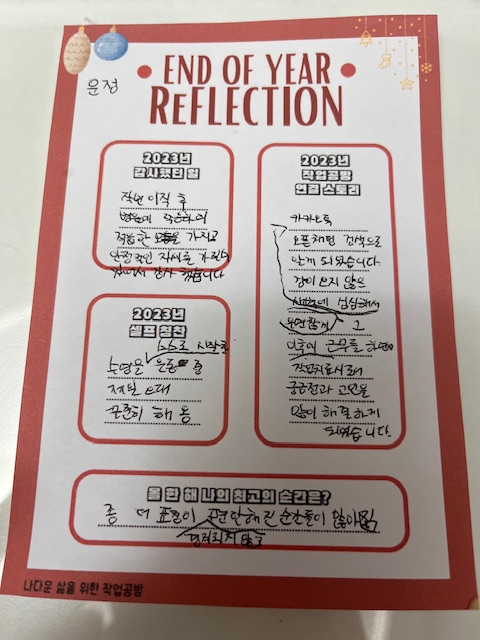 운정
END OF YEAR
REFLECTION
2023년
감사했던 일
작년 이직 후
병원에 적응하여
적응한 을 가지고
안정적인 자세를 가지게
되어서 감사 했습니다
2023년
셀프 칭찬
스스로 시작한
수영을 운동 중
지치는
꾸준히 해 옴
2023년
작업공방
연결 스토리
카카오톡
오픈채팅 검색으로
알게 되었습니다.
잠이 오지 않은
새벽에 심심해서
우연하게 그
이후에 근무를 하면서
작업치료사로서
궁금점과 고민을
많이 해결하게
되었습니다.
올 한 해 나의 최고의 순간은?
좀 더 표현이 편안해진 순간들이 많아짐
않고
나다운 삶을 위한 작업공방